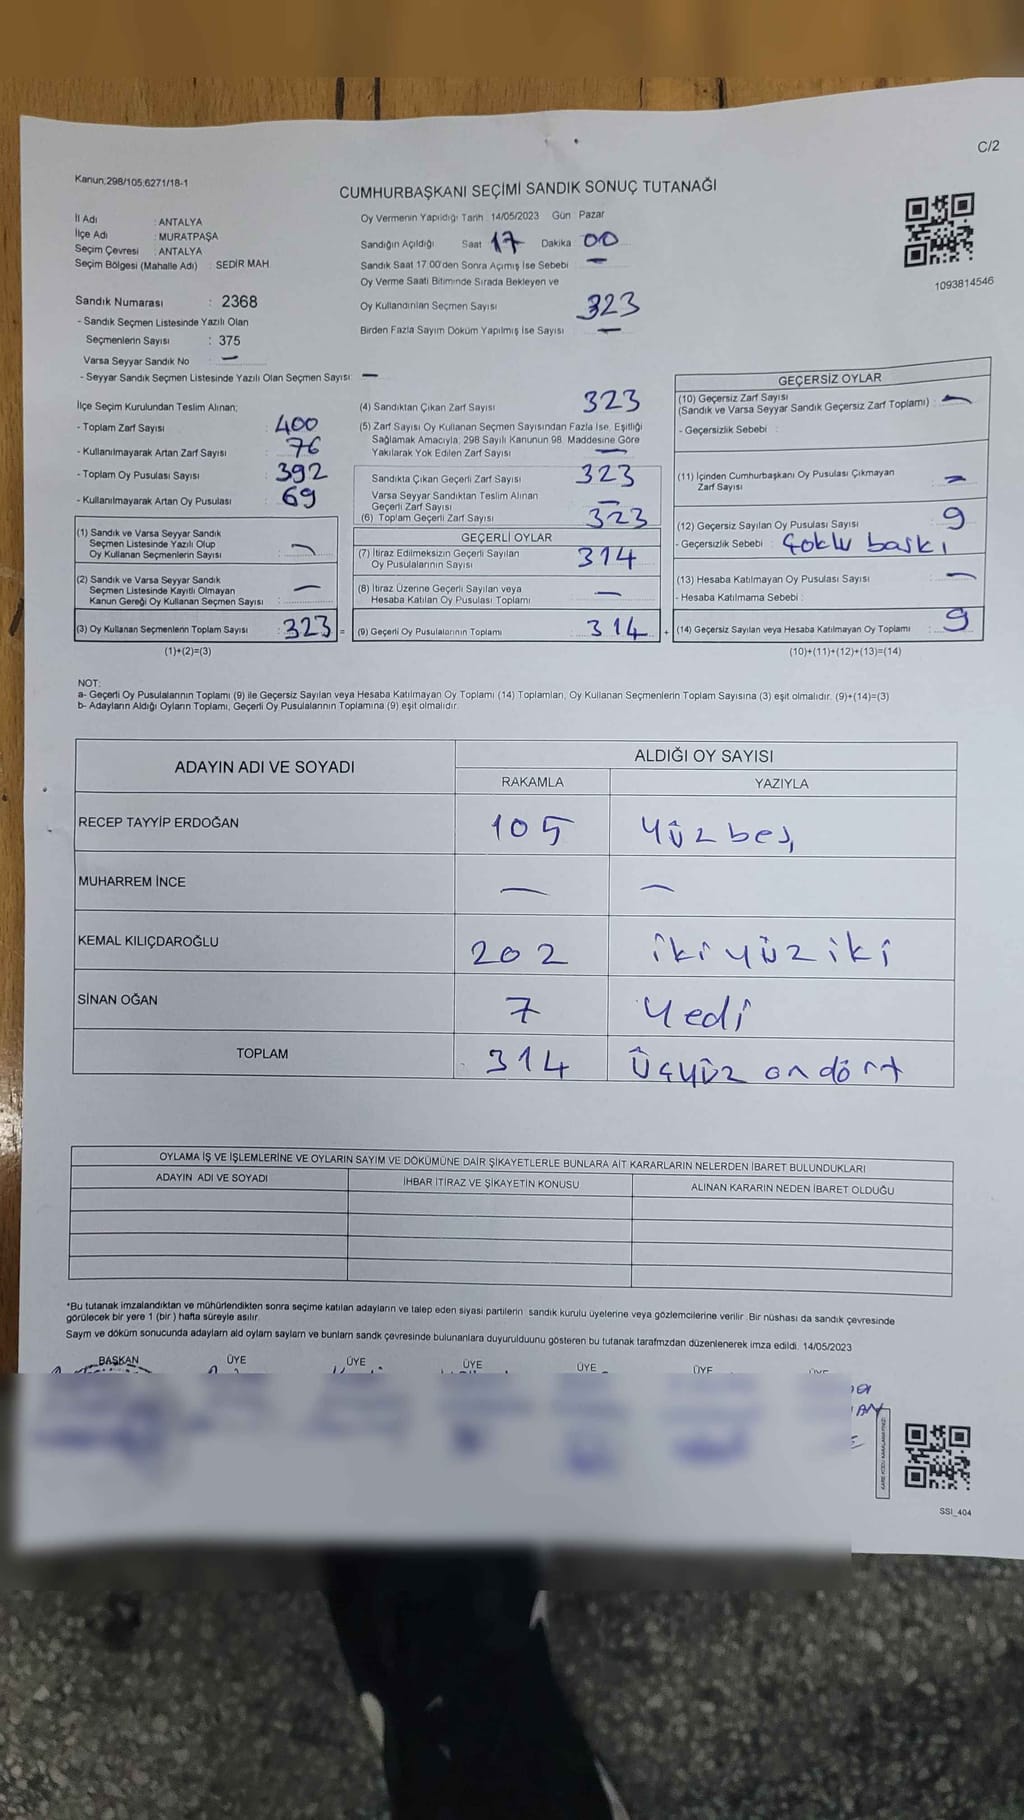 C/2
Kanun;298/105;6271/18-1
CUMHURBAŞKANI SEÇİMİ SANDIK SONUÇ TUTANAĞI
İl Adı : ANTALYA
İlçe Adı : MURATPAŞA
Seçim Çevresi : ANTALYA
Seçim Bölgesi (Mahalle Adı) : SEDİR MAH.
Oy Vermenin Yapıldığı Tarih 14/05/2023 Gün Pazar
Sandığın Açıldığı Saat 17 Dakika 00
Sandık Saat 17:00'den Sonra Açılmış İse Sebebi —
Oy Verme Saati Bitiminde Sırada Bekleyen ve
Oy Kullandırılan Seçmen Sayısı 323
Birden Fazla Sayım Döküm Yapılmış İse Sayısı —
1093814546
Sandık Numarası : 2368
- Sandık Seçmen Listesinde Yazılı Olan
Seçmenlerin Sayısı : 375
Varsa Seyyar Sandık No —
- Seyyar Sandık Seçmen Listesinde Yazılı Olan Seçmen Sayısı: —
İlçe Seçim Kurulundan Teslim Alınan;
- Toplam Zarf Sayısı : 400
- Kullanılmayarak Artan Zarf Sayısı : 76
- Toplam Oy Pusulası Sayısı : 392
- Kullanılmayarak Artan Oy Pusulası : 69
(1) Sandık ve Varsa Seyyar Sandık
Seçmen Listesinde Yazılı Olup
Oy Kullanan Seçmenlerin Sayısı : —
(2) Sandık ve Varsa Seyyar Sandık
Seçmen Listesinde Kayıtlı Olmayan
Kanun Gereği Oy Kullanan Seçmen Sayısı : —
(3) Oy Kullanan Seçmenlerin Toplam Sayısı : 323 =
(1)+(2)=(3)
(4) Sandıktan Çıkan Zarf Sayısı 323
(5) Zarf Sayısı Oy Kullanan Seçmen Sayısından Fazla İse, Eşitliği
Sağlamak Amacıyla, 298 Sayılı Kanunun 98. Maddesine Göre
Yakılarak Yok Edilen Zarf Sayısı —
Sandıkta Çıkan Geçerli Zarf Sayısı 323
Varsa Seyyar Sandıktan Teslim Alınan
Geçerli Zarf Sayısı —
(6) Toplam Geçerli Zarf Sayısı 323
GEÇERLİ OYLAR
(7) İtiraz Edilmeksizin Geçerli Sayılan
Oy Pusulalarının Sayısı 314
(8) İtiraz Üzerine Geçerli Sayılan veya
Hesaba Katılan Oy Pusulası Toplamı —
(9) Geçerli Oy Pusulalarının Toplamı 314 +
GEÇERSİZ OYLAR
(10) Geçersiz Zarf Sayısı
(Sandık ve Varsa Seyyar Sandık Geçersiz Zarf Toplamı) : —
- Geçersizlik Sebebi :
(11) İçinden Cumhurbaşkanı Oy Pusulası Çıkmayan
Zarf Sayısı : —
(12) Geçersiz Sayılan Oy Pusulası Sayısı 9
- Geçersizlik Sebebi : Çoklu baskı
(13) Hesaba Katılmayan Oy Pusulası Sayısı —
- Hesaba Katılmama Sebebi :
(14) Geçersiz Sayılan veya Hesaba Katılmayan Oy Toplamı : 9
(10)+(11)+(12)+(13)=(14)
NOT:
a- Geçerli Oy Pusulalarının Toplamı (9) ile Geçersiz Sayılan veya Hesaba Katılmayan Oy Toplamı (14) Toplamları, Oy Kullanan Seçmenlerin Toplam Sayısına (3) eşit olmalıdır. (9)+(14)=(3)
b- Adayların Aldığı Oyların Toplamı, Geçerli Oy Pusulalarının Toplamına (9) eşit olmalıdır.
ADAYIN ADI VE SOYADI ALDIĞI OY SAYISI
RAKAMLA YAZIYLA
RECEP TAYYİP ERDOĞAN 105 Yüzbeş
MUHARREM İNCE — —
KEMAL KILIÇDAROĞLU 202 ikiyüziki
SİNAN OĞAN 7 Yedi
TOPLAM 314 Üçyüz ondört
OYLAMA İŞ VE İŞLEMLERİNE VE OYLARIN SAYIM VE DÖKÜMÜNE DAİR ŞİKAYETLERLE BUNLARA AİT KARARLARIN NELERDEN İBARET BULUNDUKLARI
ADAYIN ADI VE SOYADI İHBAR İTİRAZ VE ŞİKAYETİN KONUSU ALINAN KARARIN NEDEN İBARET OLDUĞU
*Bu tutanak imzalandıktan ve mühürlendikten sonra seçime katılan adayların ve talep eden siyasi partilerin sandık kurulu üyelerine veya gözlemcilerine verilir. Bir nüshası da sandık çevresinde
görülecek bir yere 1 (bir) hafta süreyle asılır.
Sayım ve döküm sonucunda adayların ald oyların sayların ve bunların sandk çevresinde bulunanlara duyurulduunu gösteren bu tutanak tarafmzdan düzenlenerek imza edildi. 14/05/2023
BAŞKAN ÜYE ÜYE ÜYE ÜYE ÜYE
SSI_404